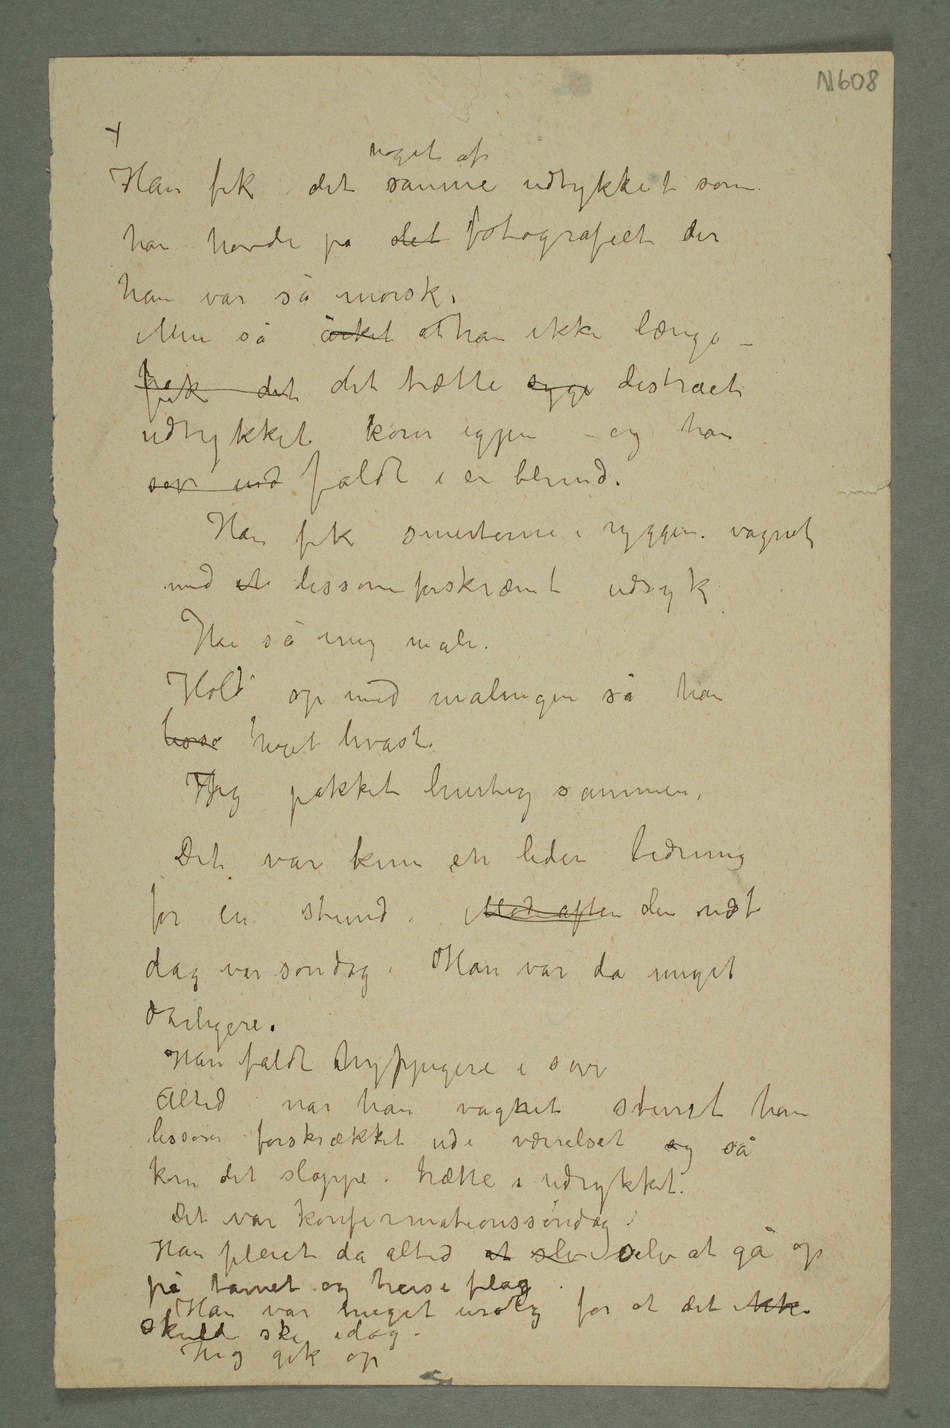 N608
+
noget af
Han fik det samme udtrykket som
han havde på det fotografiet der
han var så morsk.
Men så orket at han ikke længe –
fik det det trætte syge distraet
udtrykket kom igjen – og han
sov ind faldt i en blund.
Han fik smerterne i ryggen. vågnet
med et lissom forskræmt udsyk
Han så mig male.
Hold op med malingen sa han
lisso noget hvast.
Jeg pakket hurtig sammen.
Det var kun en liden bedring
for en stund. Mod aften den næst
dag var søndag. Han var da meget
dårligere.
Han faldt hyppigere i søvn
Altid når han vågnet stirret han
lissom forskrækket ud i værelset og så
kom det slappe. trætte i udtrykket.
Det var konfirmationssøndag.
Han pleiet da altid at selv selv at gå op
på tårnet og heise flag.
Han var meget urolig for at det ikke
skulde ske idag.
Jeg gik op